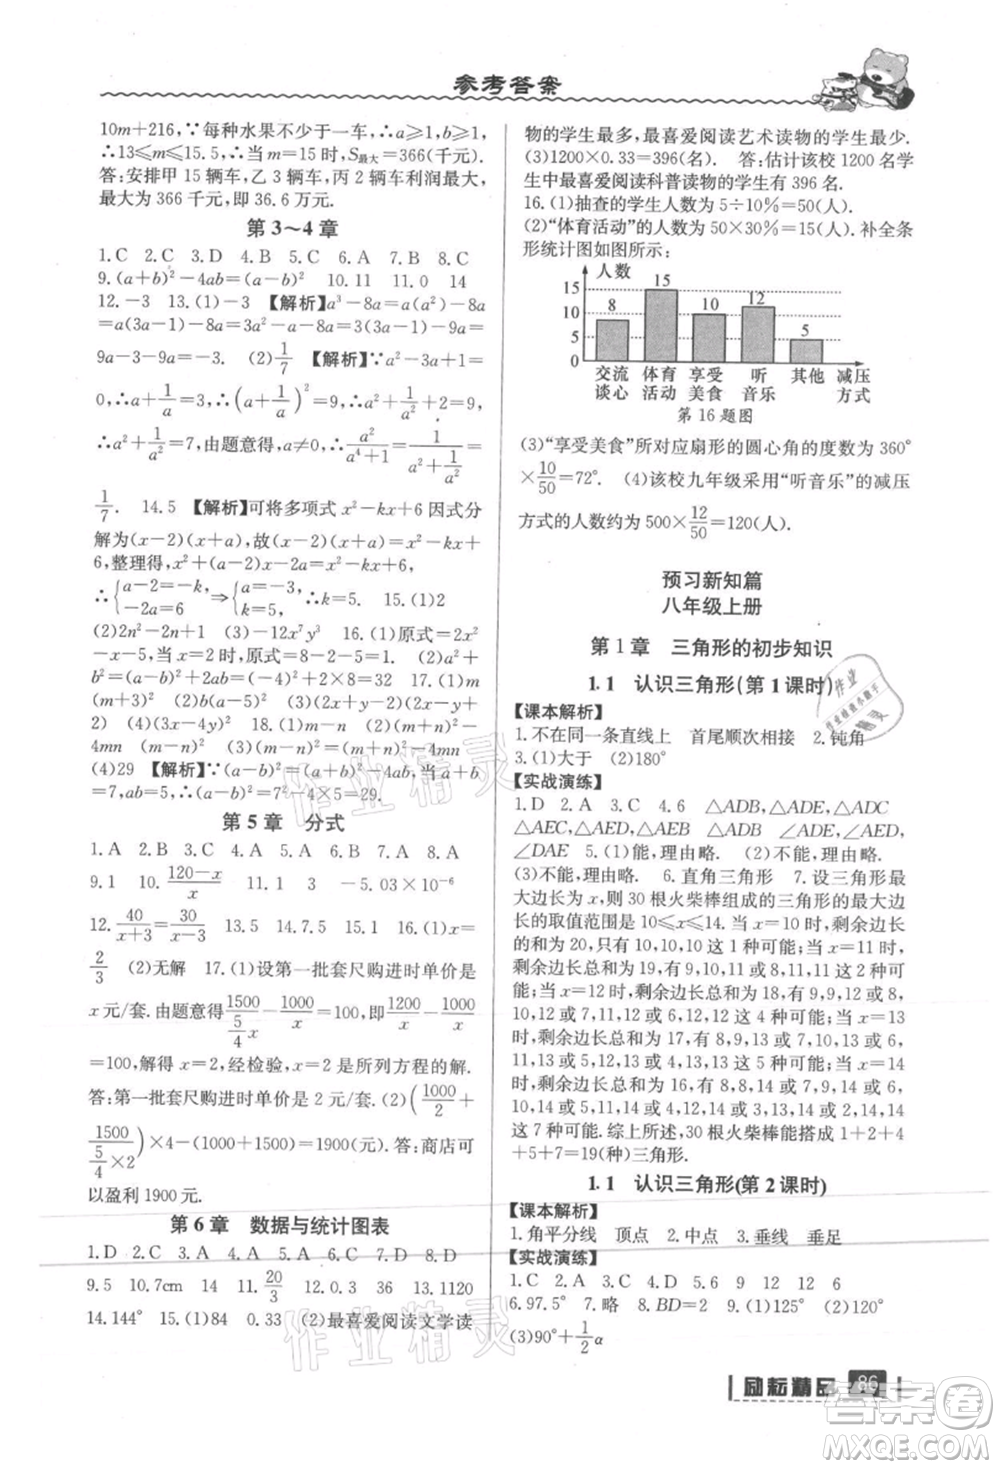 参考答案
10m+216,∵每种水果不少于一车,∴a≥1,b≥1,
∴13≤m≤15.5,∴当 m=15 时,S最大=366(千元).
答:安排甲 15 辆车,乙 3 辆车,丙 2 车利润最大,
最大为 366 千元,即 36.6 万元.
第 3~4 章
1.C 2.C 3.D 4.B 5.C 6.A 7.B 8.C
9.(a+b)²-4ab=(a-b)² 10.11 11.0 14
12.-3 13.(1)-3 【解析】a³-8a=a(a²)-8a
=a(3a-1)-8a=3a²-a-8a=3(3a-1)-9a=
9a-3-9a=-3. (2)1/7 【解析】∵a²-3a+1=
0,∴a+1/a=3,∴(a+1/a)²=a²+2+1/a²=9.
∴a²+1/a²=7,由题意得,a≠0,∴a²/(a⁴+1)=1/(a²+1/a²)=
1/7. 14.5 【解析】可将多项式 x²-kx+6 因式分
解为(x-2)(x+a),故(x-2)(x+a)=x²-kx+
6,整理得,x²+(a-2)x-2a=x²-kx+6,
∴{a-2=-k, -2a=6 ⇒{a=-3, k=5. ∴k=5. 15.(1)2
(2)2n²-2n+1 (3)-12x⁷y³ 16.(1)原式=6x+
5,当 x=-1/2 时,原式=8-2=6. (2)原式=a²+
b²=(a+b)²-2ab=(-5)²-2×6=13. 17.(1)-
(m+3)² (2)b(a-b)² (3)(2x+y-2)(2x+y+
2) (4)(3x-2y)² 18.(1)m-n (2)(m+n)²-
4mn (m-n)² (3)(m+n)²-(m-n)²=4mn
(4)29 【解析】∵(a-b)²=(a+b)²-4ab,当 a+
b=7,ab=5 时,∴(a-b)²=7²-4×5=29.
第 5 章 分式
1.A 2.B 3.C 4.A 5.A 6.B 7.A 8.A
9.1 10.(120-x)/x 11.1 3 -5.03×10⁻⁶
12.40/(x+3)=30/x 13.5 14.7.5 15.1 16.(1)x=
2/3 (2)无解 17.(1)设第一批套尺购进时单价是
x 元/套. 由题意得 1500/(5/4 x)-1000/x=100,即 1200/x-1000/x
=100,解得 x=2,经检验,x=2 是所列方程的解.
答:第一批套尺购进时单价是 2 元/套.(2)(1000/2+
1500/(5/4×2))×4-(1000+1500)=1900(元).答:商店可
以盈利 1900 元.
第 6 章 数据与统计图表
1.D 2.D 3.A 4.A 5.A 6.B 7.C 8.D
9.5 10.7cm 14 11.20/3 12.0.3 36 13.1120
14.144° 15.(1)84 0.33 (2)最喜爱阅读文学读
物的学生最多,最喜爱阅读艺术读物的学生最少.
(3)1200×0.33=396(名). 答:估计该校 1200 名学
生中最喜爱阅读科普读物的学生有 396 名.
16.(1)抽查的学生人数为 5÷10%=50(人).
(2)“体育活动”的人数为 50×30%=15(人).补全条
形统计图如图所示:
人数
15
10
5
0
8 15 10 12 5
交流谈心 体育活动 享受美食 听音乐 其他 减压方式
第 16 题图
(3)“享受美食”所对应扇形的圆心角的度数为 360°
×10/50=72°. (4)该校九年级采用“听音乐”的减压
方式的人数约为 500×12/50=120(人).
预习新知篇
八年级上册
第 1 章 三角形的初步知识
1.1 认识三角形(第 1 课时)
【课本解析】
1.不在同一条直线上 首尾顺次相接 2.钝角
3.(1)大于 (2)180°
【实战演练】
1.D 2.A 3.C 4.6 △ADB,△ADE,△ADC
△AEC,△AED,△AEB △ADB ∠ADE,∠AED,
∠DAE 5.(1)能,理由略. (2)不能,理由略.
(3)不能,理由略. 6.直角三角形 7.设三角形最
大边长为 x,则 30 根火柴棒组成的三角形的最大边
的取值范围是 10≤x≤14. 当 x=10 时,剩余边长
的和为 20,有 10,10,10 这 1 种可能;当 x=11 时,
剩余边长总和为 19,有 11,11,8 和 11,10,9 这 2 种
可能;当 x=12 时,剩余边长总和为 18,有 9,12,9,
10,12,8,11,12,7,12,12,6 这 4 种可能;当 x=13
时,剩余边长总和为 17,有 9,13,8,10,13,7,
11,13,5,12,13,5,13,13,4 这 5 种可能;当 x=14
时,剩余边长总和为 16,有 8,14,8,9,14,7,10,
14,6,11,14,5,12,14,4,13,14,3,14,14,2 这 7 种
可能.综上所述,30 根火柴棒能搭成 1+2+4+
5+7=19(种)三角形.
1.1 认识三角形(第 2 课时)
【课本解析】
1.角平分线 顶点 2.中点 3.垂线 垂足
【实战演练】
1.C 2.A 3.C 4.12 5.9 12 12 6
6.97.5° 7.略 8.BD=2 9.(1)125° (2)130°
(3)90°+1/2α
励耘精品 86
作业精灵
答案圈
MXQE.COM